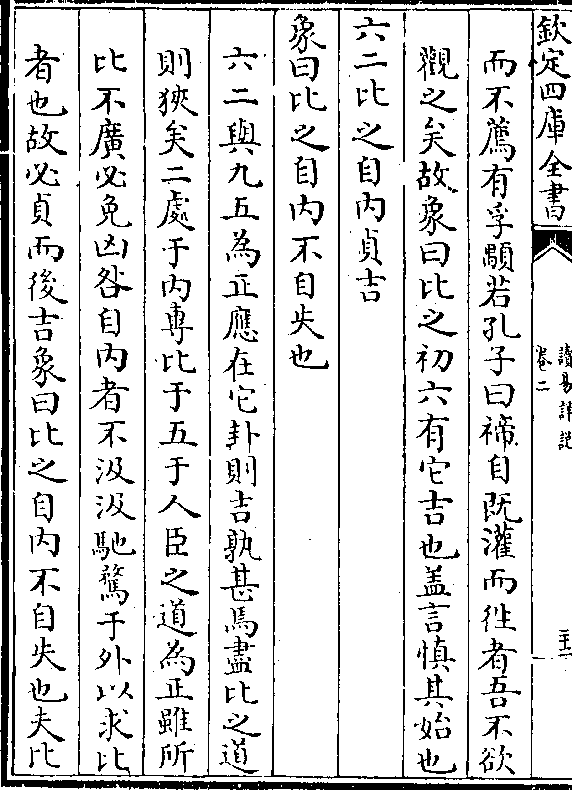 欽定四庫全書
讀易詳說
卷二
三十二
而不薦有孚顒若孔子曰禘自既灌而徃者吾不欲
觀之矣故象曰比之初六有它吉也盖言慎其始也
六二比之自内貞吉
象曰比之自内不自失也
六二與九五為正應在它卦則吉孰甚焉盡比之道
則狹矣二處于内專比于五于人臣之道為正雖所
比不廣必免凶咎自内者不汲汲馳騖于外以求比
者也故必貞而後吉象曰比之自内不自失也夫比